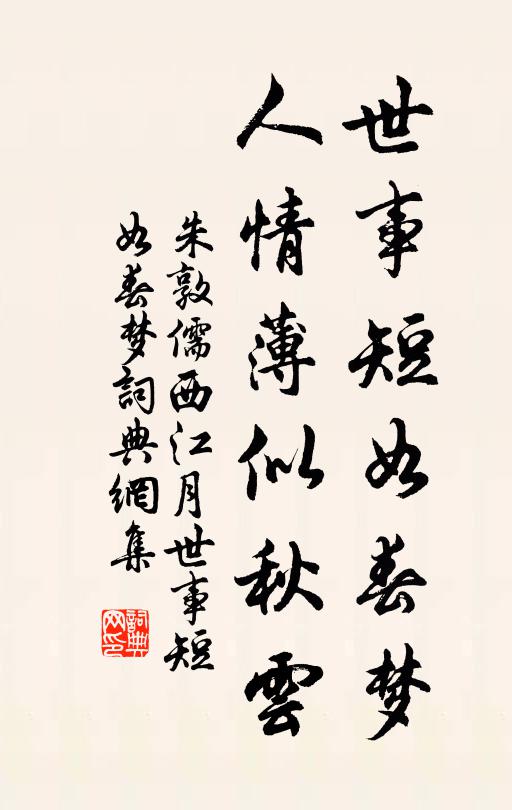 世事短如春梦
人情薄似秋雲
朱敦儒西江月世事短
如春梦詞典網集
詞典
网印